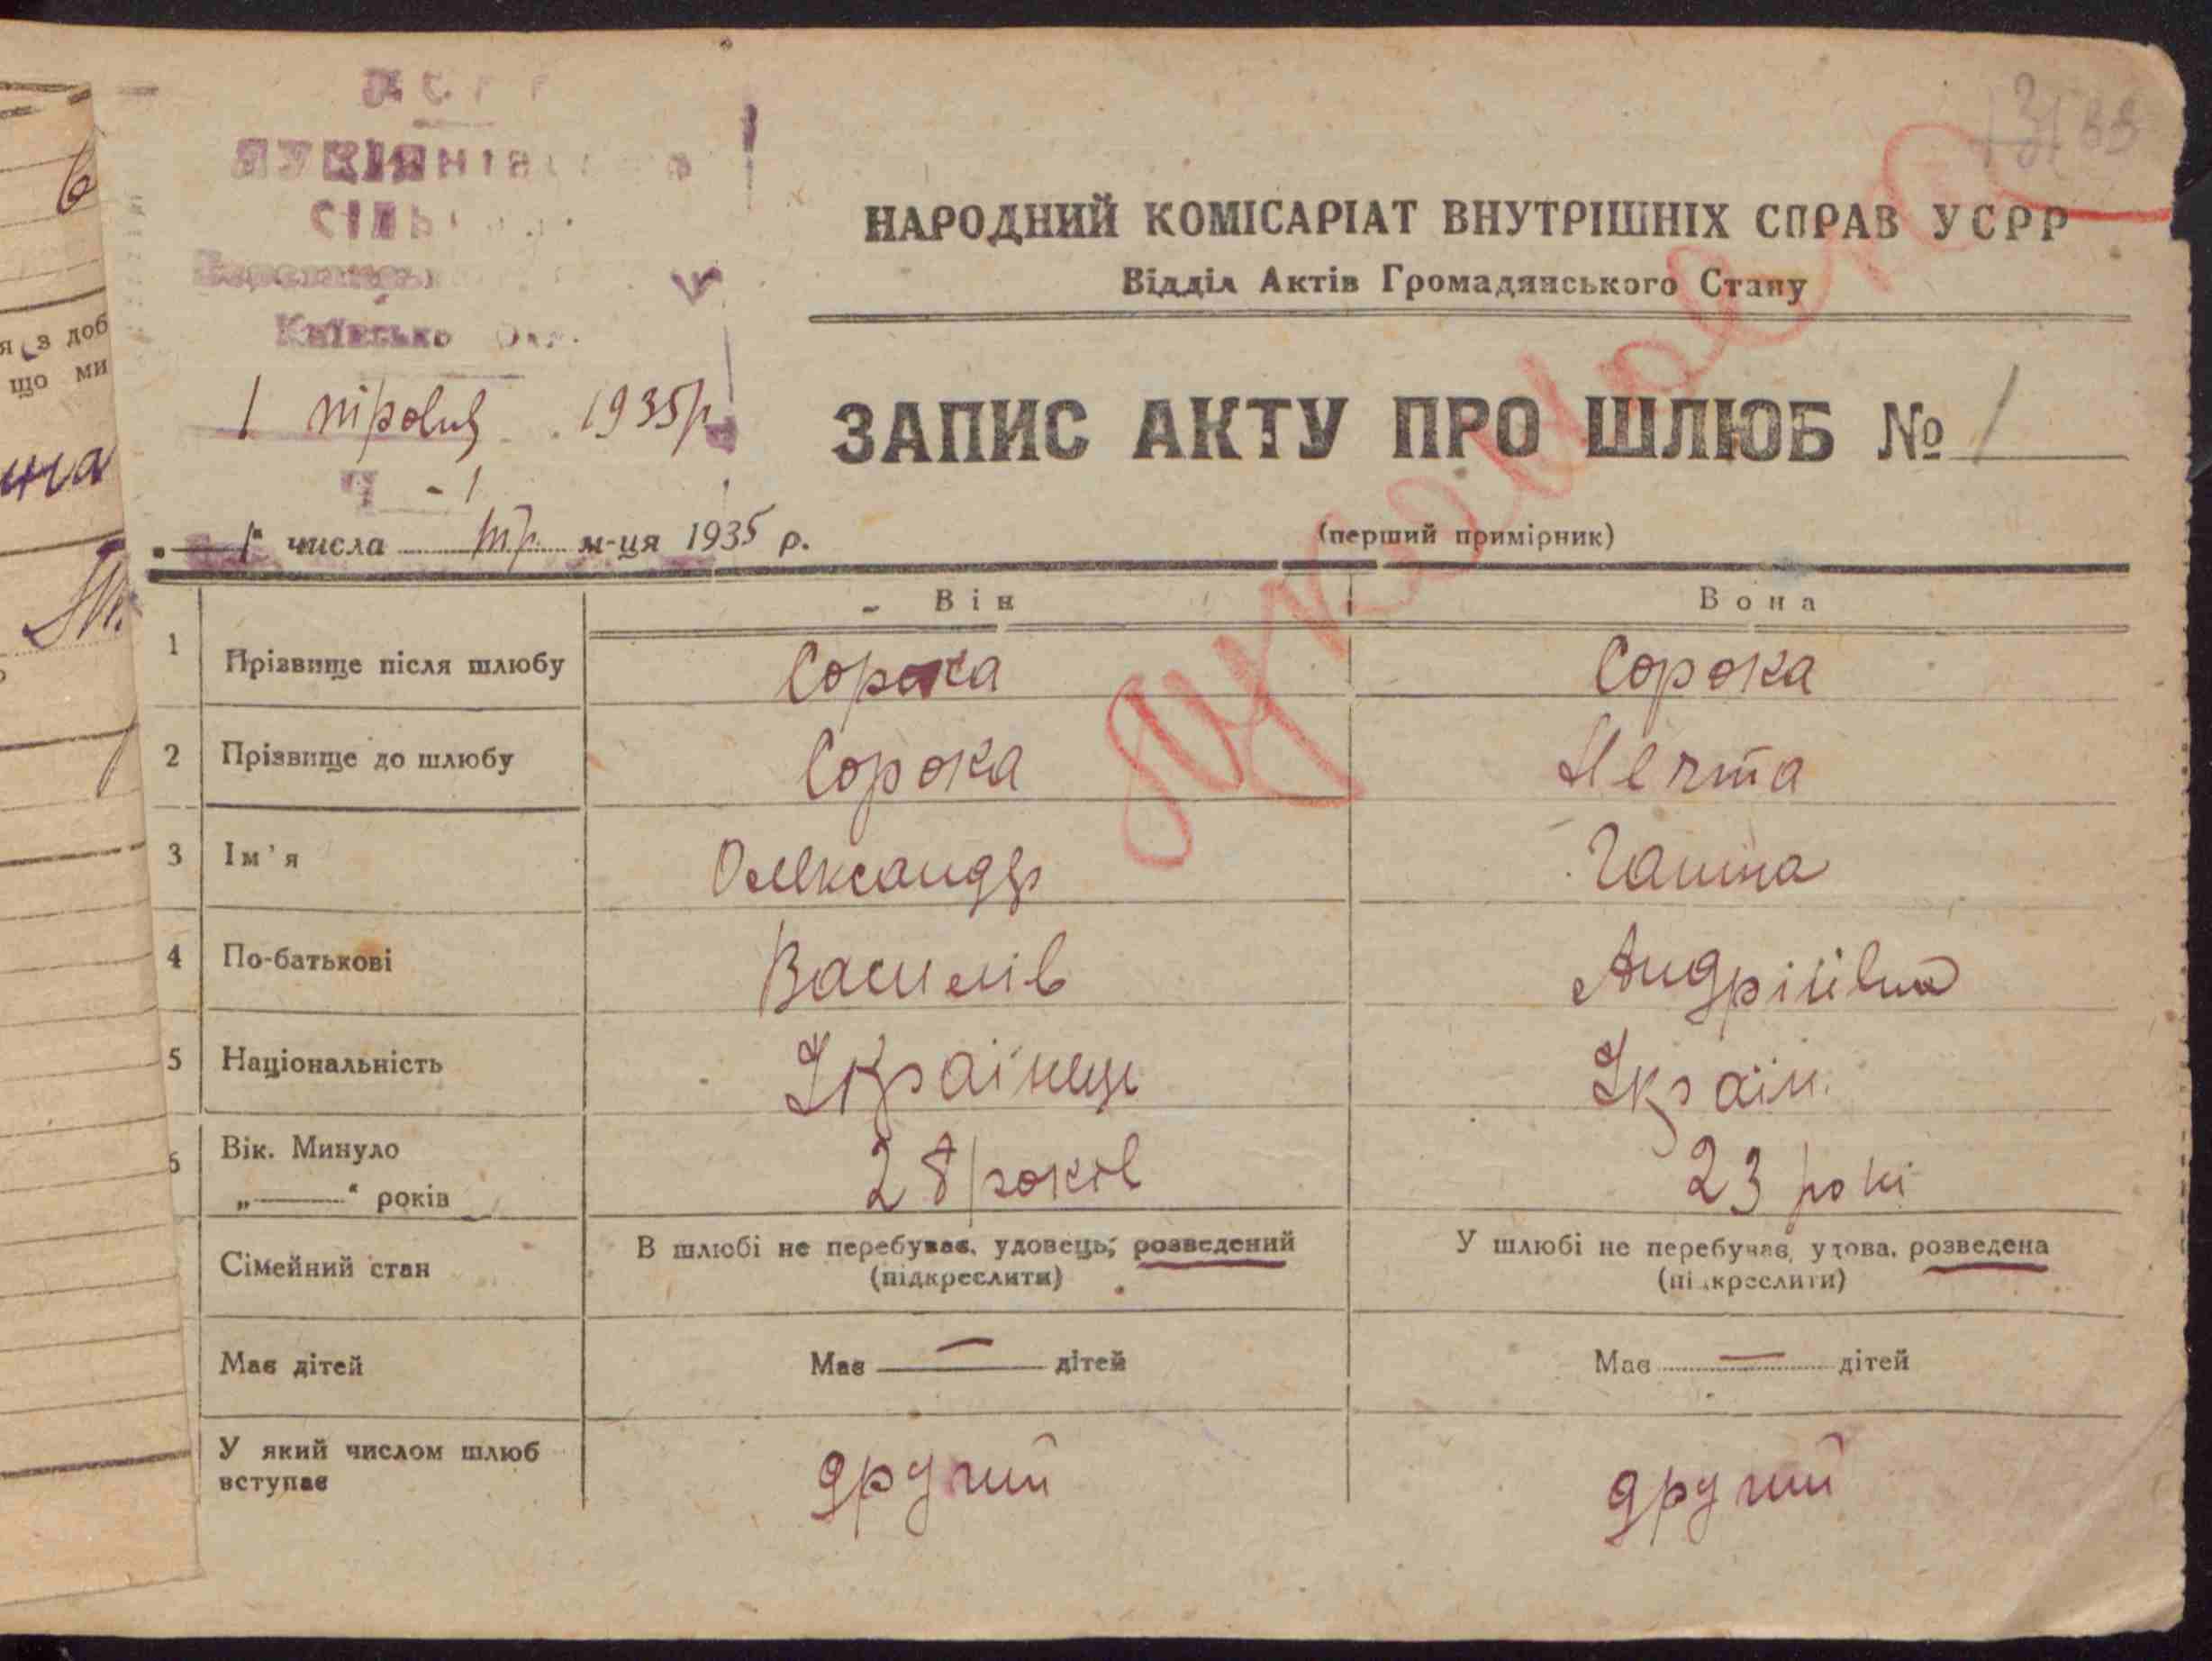 УСРР
СІЛЬ
Київсько
1 травця 1935р
Ч - 1
НАРОДНИЙ КОМІСАРІАТ ВНУТРІШНІХ СПРАВ УСРР
Відділ Актів Громадянського Стану
ЗАПИС АКТУ ПРО ШЛЮБ № 1
„1“ числа тр. м-ця 1935 р.
(перший примірник)
Він Вона
1 Прізвище після шлюбу Сорока Сорока
2 Прізвище до шлюбу Сорока
3 Ім'я Олександр Ганна
4 По-батькові Василів Андріївна
5 Національність Українець Україн.
6 Вік. Минуло
„——“ років 28 років 23 рокі
Сімейний стан В шлюбі не перебував, удовець, розведений У шлюбі не перебучає, удова, розведена
(підкреслити) (підкреслити)
Має дітей Має — дітей Має — дітей
У який числом шлюб
вступає другий другий
я з доб
що ми